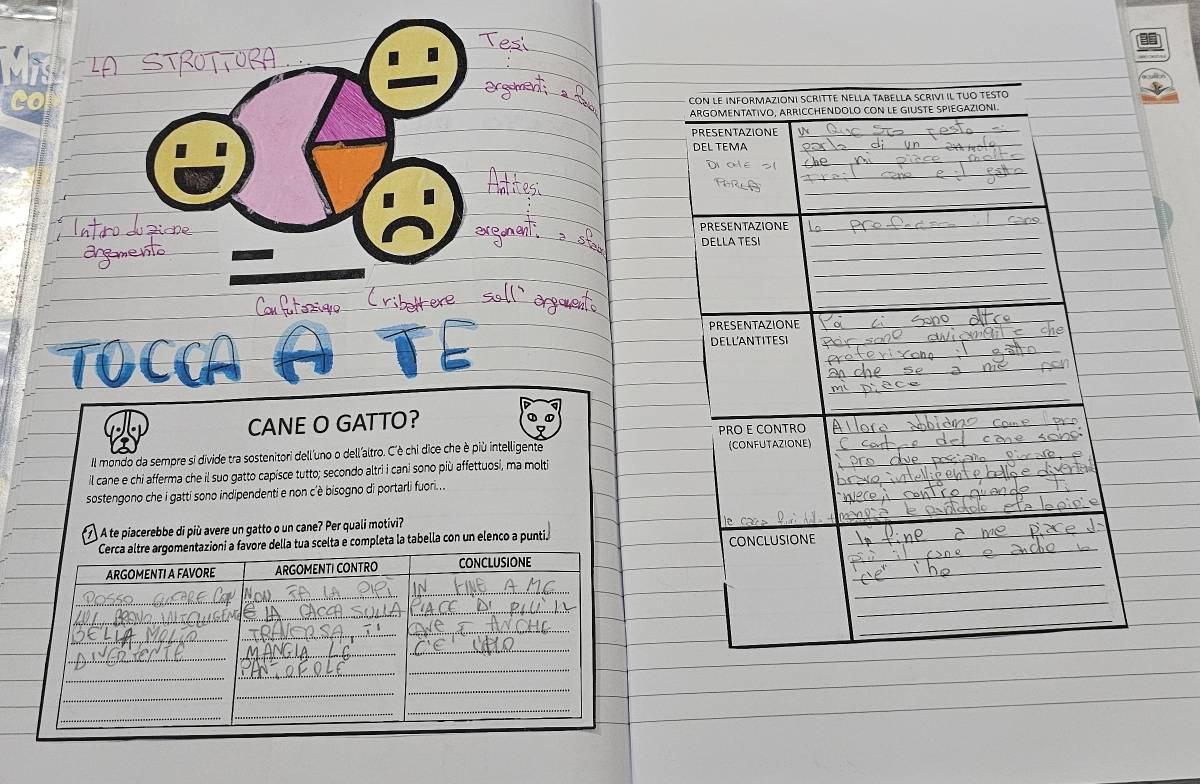 LA STRUTTURA...
Tesi
argomenti a
Antitesi
argomenti a
Introduzione
argomento
Confutazione (ribattere sull'argomento
TOCCA A TE
CANE O GATTO?
Il mondo da sempre si divide tra sostenitori dell'uno o dell'altro. C'è chi dice che è più intelligente
il cane e chi afferma che il suo gatto capisce tutto; secondo altri i cani sono più affettuosi, ma molti
sostengono che i gatti sono indipendenti e non c'è bisogno di portarli fuori...
A te piacerebbe di più avere un gatto o un cane? Per quali motivi?
Cerca altre argomentazioni a favore della tua scelta e completa la tabella con un elenco a punti.
ARGOMENTI A FAVORE
POSSO GIOCARE CON
LUI BRAVO INTELLIGENTE
BELLA MOLTO
DIVERTENTE
ARGOMENTI CONTRO
NON FA LA PIPÌ
E LA CACCA SULLA
TRAVERSA, TI
MANGIA LE
PANTOFOLE
CONCLUSIONE
IN FINE A ME
PIACE DI PIÙ IL
CANE E ANCHE
CE L'HO
CON LE INFORMAZIONI SCRITTE NELLA TABELLA SCRIVI IL TUO TESTO
ARGOMENTATIVO, ARRICCHENDOLO CON LE GIUSTE SPIEGAZIONI.
PRESENTAZIONE
DEL TEMA
DI CHE SI
PARLA
In questo testo si
parla di un
che mi piace molto
tra il cane e il gatto
PRESENTAZIONE
DELLA TESI
Io il cane
PRESENTAZIONE
DELL'ANTITESI
Poi ci sono altre
persone che
il gatto
anche se a me non
mi piace
PRO E CONTRO
(CONFUTAZIONE)
Allora abbiamo come i pro
e contro del cane sono:
i pro che giocare, e
bravo, intelligente bello e divertente
invece i contro quando ti
mangia le e fa la pipì e
le cacca
CONCLUSIONE
In fine a me piace di
più il cane e anche
ce l'ho